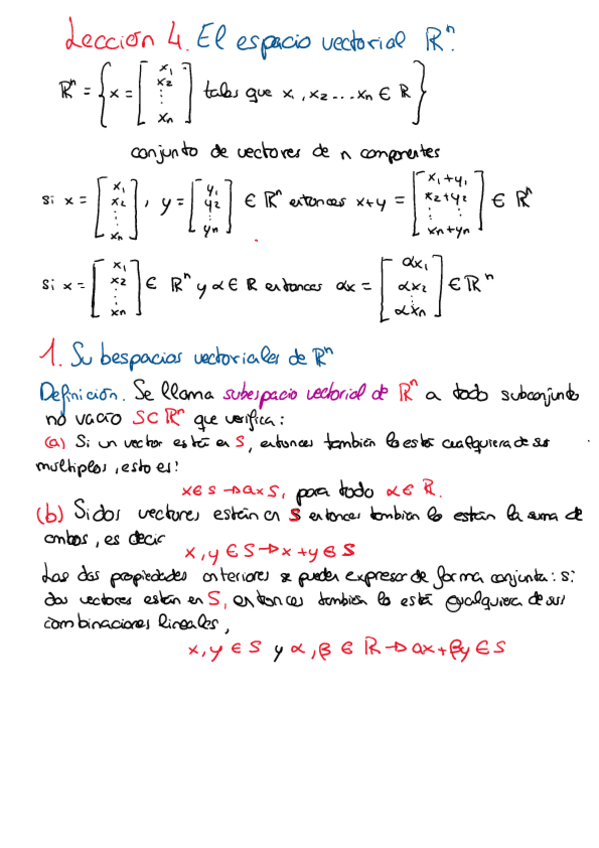 Lección 4. El espacio vectorial ℝⁿ.
ℝⁿ = { x = [ x₁ x₂ ⋮ xₙ ] tales que x₁, x₂ ... xₙ ∈ ℝ }
conjunto de vectores de n componentes
si x = [ x₁ x₂ ⋮ xₙ ], y = [ y₁ y₂ ⋮ yₙ ] ∈ ℝⁿ entonces x+y = [ x₁+y₁ x₂+y₂ ⋮ xₙ+yₙ ] ∈ ℝⁿ
si x = [ x₁ x₂ ⋮ xₙ ] ∈ ℝⁿ y α ∈ ℝ entonces αx = [ αx₁ αx₂ ⋮ αxₙ ] ∈ ℝⁿ
1. Subespacios vectoriales de ℝⁿ
Definición. Se llama subespacio vectorial de ℝⁿ a todo subconjunto
no vacío S⊂ℝⁿ que verifica:
(a) Si un vector está en S, entonces también lo está cualquiera de sus
multiplos, esto es:
x∈S → αxS, para todo α∈ℝ.
(b) Si dos vectores están en S entonces tambien lo están la suma de
ambos, es decir
x, y ∈ S → x+y ∈ S
Las dos propiedades anteriores se pueden expresar de forma conjunta: si
dos vectores están en S, entonces también lo está cualquiera de sus
combinaciones lineales,
x, y ∈ S y α, β ∈ ℝ → αx+βy ∈ S